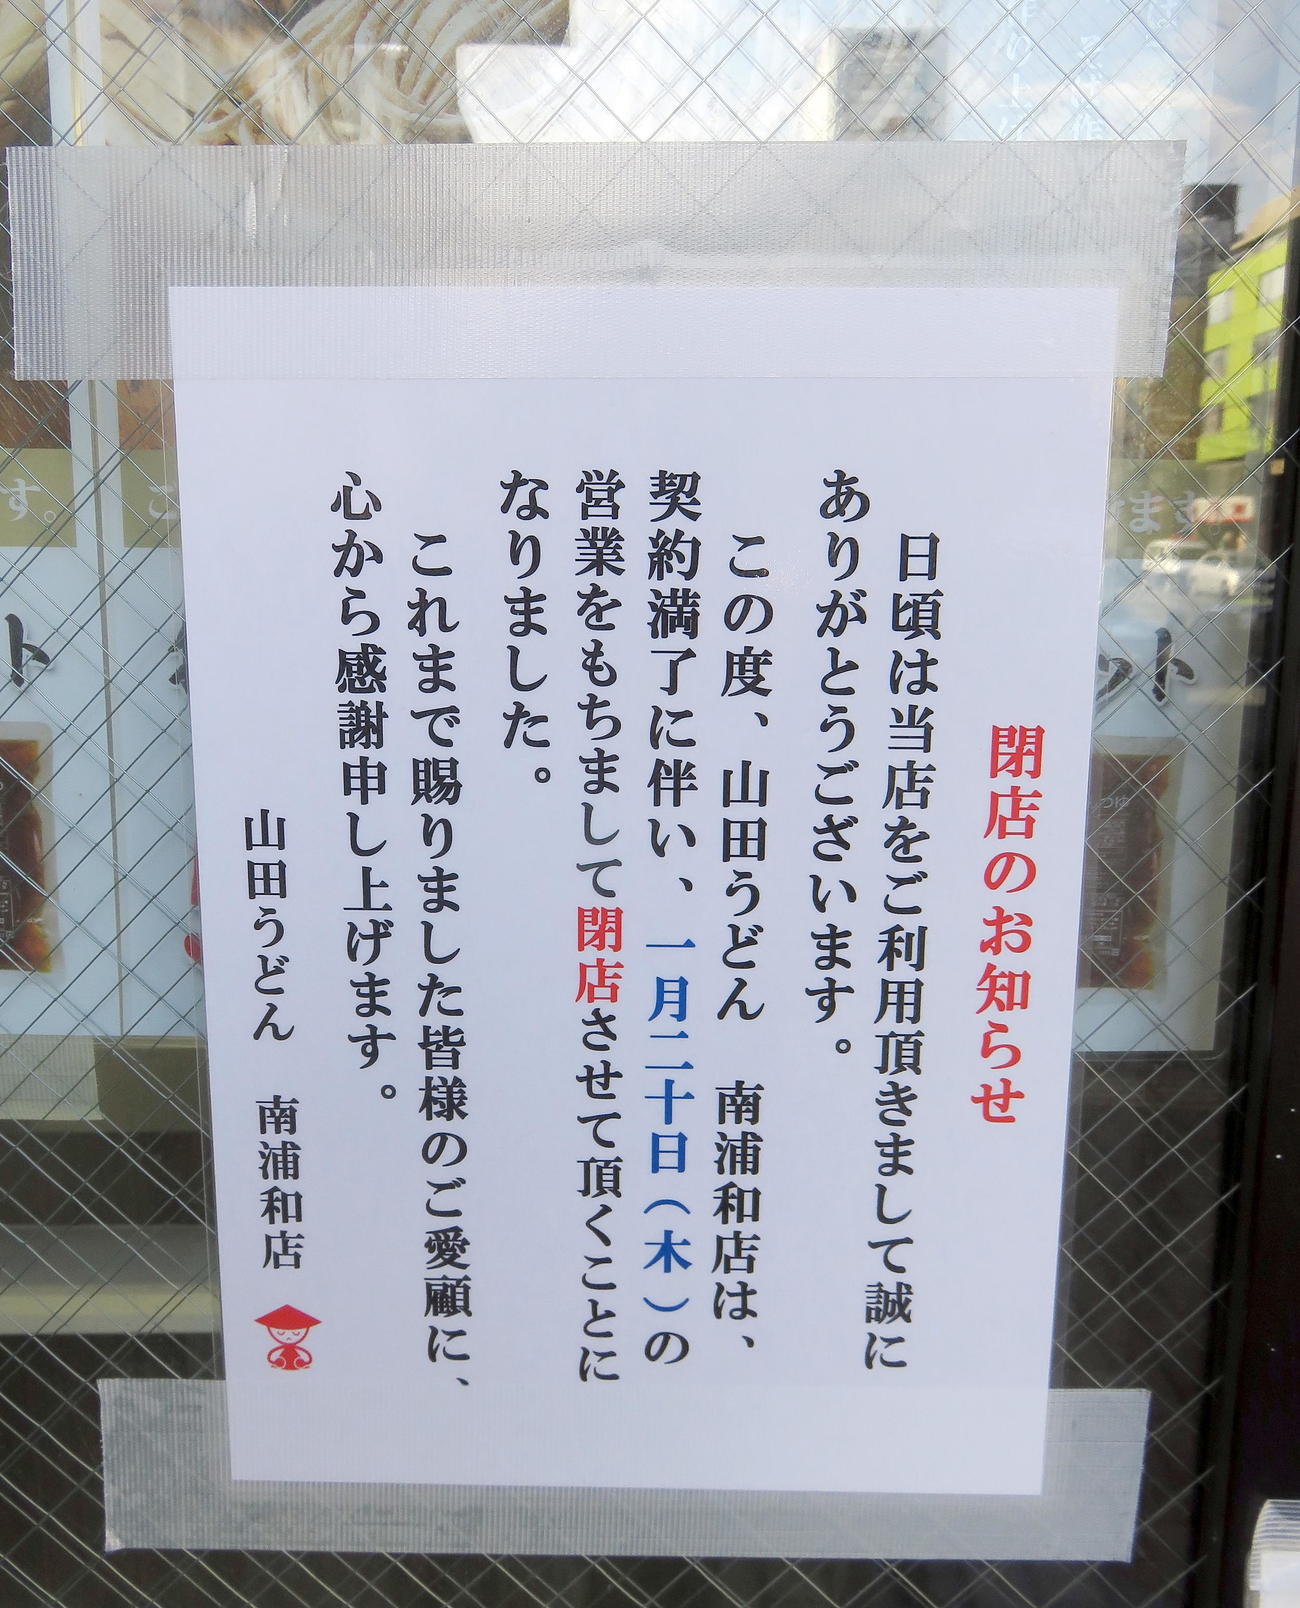 閉店のお知らせ
日頃は当店をご利用頂きまして誠に
ありがとうございます。
この度、山田うどん　南浦和店は、
契約満了に伴い、一月二十日（木）の
営業をもちまして閉店させて頂くことに
なりました。
これまで賜りました皆様のご愛顧に、
心から感謝申し上げます。
山田うどん　南浦和店